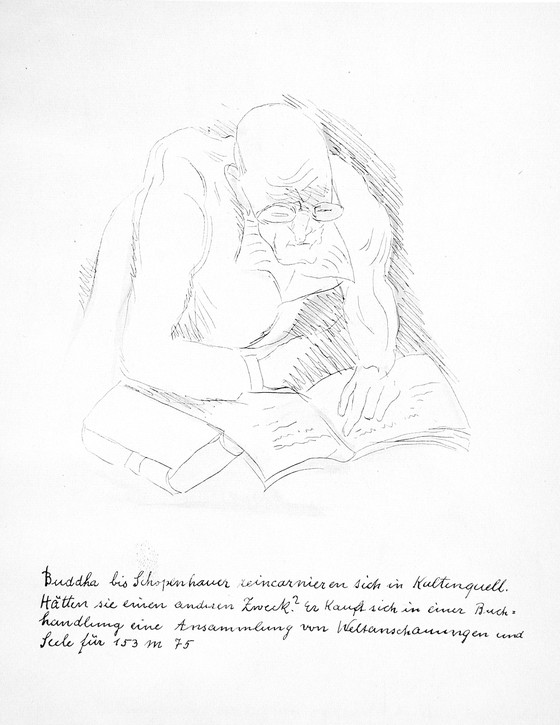 Buddha bis Schopenhauer reincarnieren sich in Kultenquell.
Hätten sie einen anderen Zweck? Er kauft sich in einer Buch=
handlung eine Ansammlung von Weltanschauungen und
Seele für 153 M 75